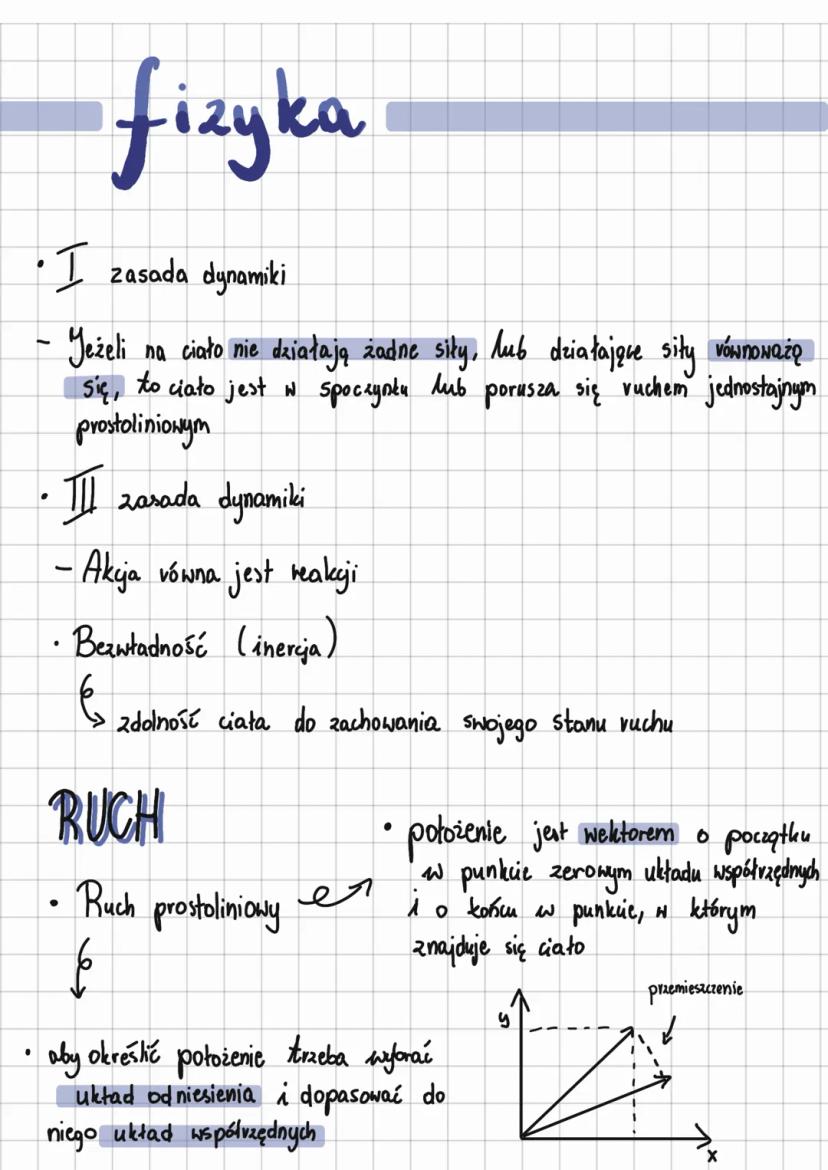 fizyka
• I zasada dynamiki
- Jeżeli na ciało nie działają żadne siły, lub działające siły równoważą
się, to ciało jest w spoczynku lub porusza się ruchem jednostajnym
prostoliniowym
• III zasada dynamiki
- Akcja równa jest reakcji
• Bezwładność (inercja)
zdolność ciała do zachowania swojego stanu ruchu
RUCH
• Ruch prostoliniowy
• położenie jest wektorem o początku
w punkcie zerowym układu współrzędnych
i o końcu w punkcie, w którym
znajduje się ciało
• aby określić położenie trzeba wybrać
układ odniesienia i dopasować do
niego układ współrzędnych
przemieszczenie
y
x